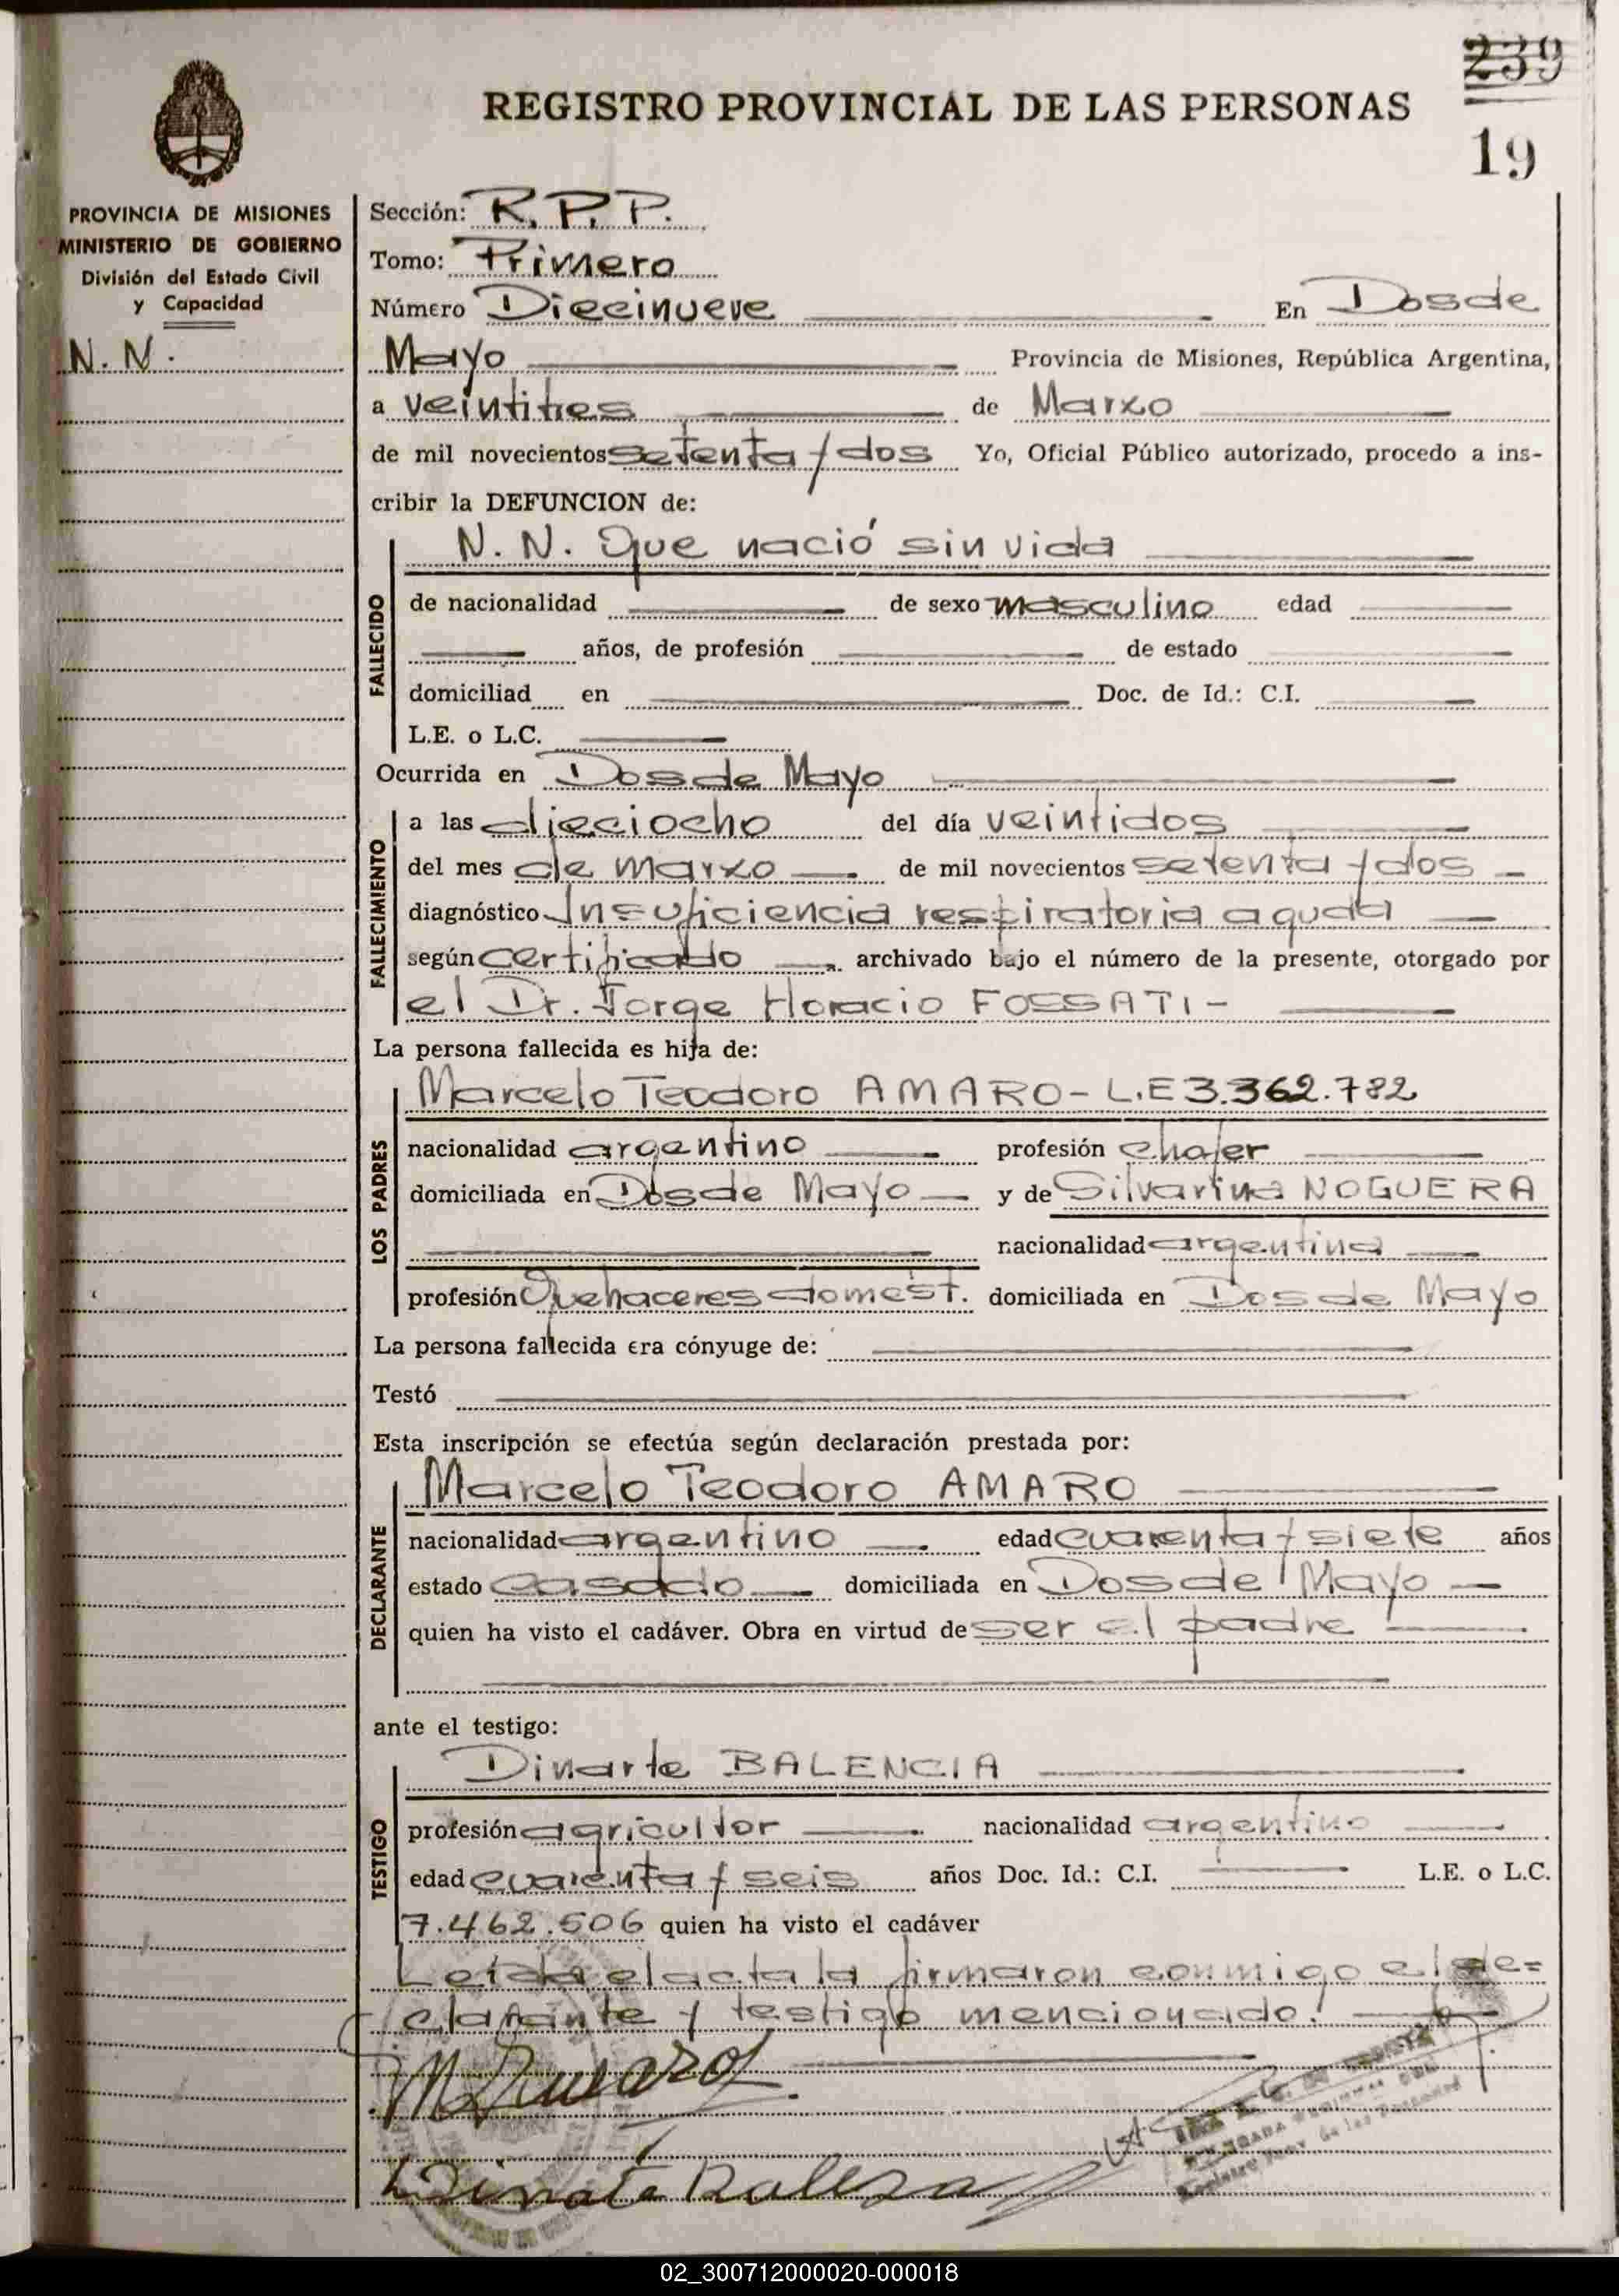 239
REGISTRO PROVINCIAL DE LAS PERSONAS
19
PROVINCIA DE MISIONES
MINISTERIO DE GOBIERNO
División del Estado Civil
y Capacidad
N. N.
Sección: R.P.P.
Tomo: Primero
Número Diecinueve En Dos de
Mayo Provincia de Misiones, República Argentina,
a veintitres de Marzo
de mil novecientos setenta y dos Yo, Oficial Público autorizado, procedo a ins-
cribir la DEFUNCION de:
N. N. Que nació sin vida
FALLECIDO
de nacionalidad de sexo masculino edad
años, de profesión de estado
domiciliad en Doc. de Id.: C.I.
L.E. o L.C.
Ocurrida en Dos de Mayo
FALLECIMIENTO
a las dieciocho del día veintidos
del mes de marzo de mil novecientos setenta y dos
diagnóstico Insuficiencia respiratoria aguda
según certificado archivado bajo el número de la presente, otorgado por
el Dr. Jorge Horacio FOSSATI-
La persona fallecida es hija de:
LOS PADRES
Marcelo Teodoro AMARO- L.E 3.362.782
nacionalidad argentino profesión chofer
domiciliada en Dos de Mayo y de Silvarina NOGUERA
nacionalidad argentina
profesión Quehaceres domést. domiciliada en Dos de Mayo
La persona fallecida era cónyuge de:
Testó
Esta inscripción se efectúa según declaración prestada por:
DECLARANTE
Marcelo Teodoro AMARO
nacionalidad argentino edad cuarenta y siete años
estado casado domiciliada en Dos de Mayo
quien ha visto el cadáver. Obra en virtud de ser el padre
ante el testigo:
TESTIGO
Dinarte BALENCIA
profesión agricultor nacionalidad argentino
edad cuarenta y seis años Doc. Id.: C.I. L.E. o L.C.
7.462.506 quien ha visto el cadáver
Leida el acta la firmaron conmigo el de=
clarante y testigo mencionado!
02_300712000020-000018